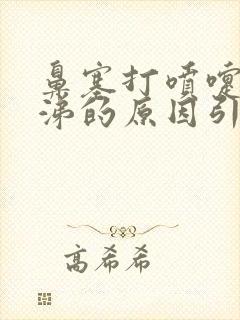 鼻塞打喷嚏
涕的原因引
高希希